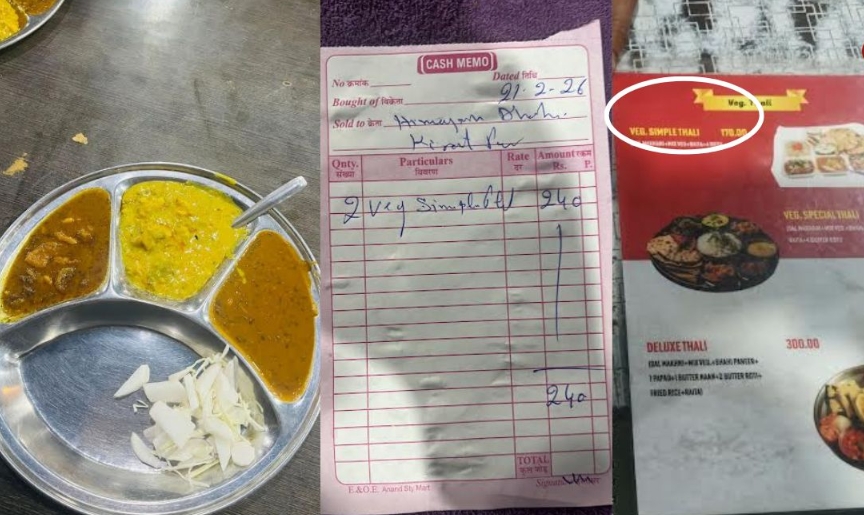 CASH MEMO
No क्रमांक
Dated तिथि 21-2-26
Bought of विक्रेता
Sold to क्रेता
Qnty. संख्या Particulars विवरण Rate दर Amount रकम Rs. P.
2 Veg Simple 240
240
TOTAL
कुल जोड़
E.&O.E. Anand Sty Mart
Veg. Thali
VEG. SIMPLE THALI 170.00
VEG. SPECIAL THALI
(DAL MAKHANI+MIX VEG.+
RAITA+4 BUTTER ROTI)
DELUXE THALI 300.00
(DAL MAKHNI+MIX VEG.+SHAHI PANEER+
1 PAPAD+1 BUTTER NAAN+2 BUTTER ROTI+
FRIED RICE+RAITA)